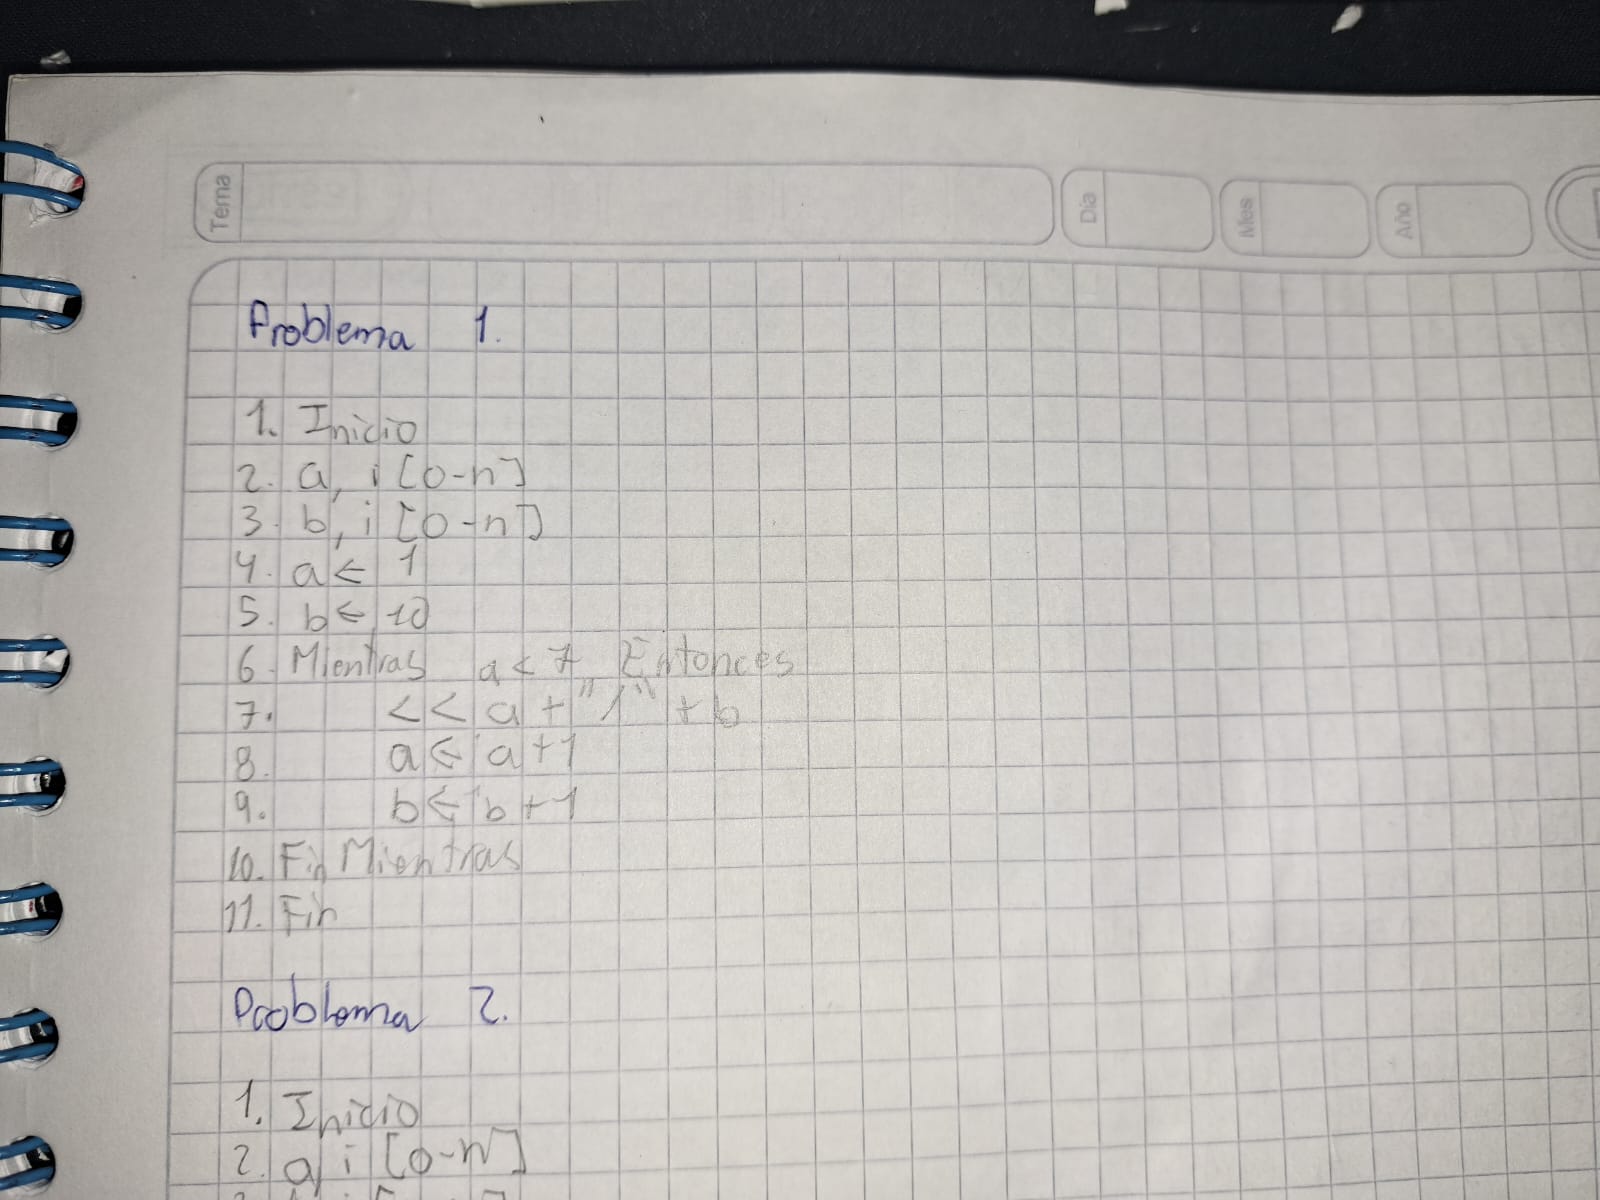 Tema Día Mes Año
Problema 1.
1. Inicio
2. a, i [0-n]
3. b, i [0-n]
4. a ← 1
5. b ← 10
6. Mientras a < 7 Entonces
7. << a + "/" + b
8. a ← a + 1
9. b ← b + 1
10. Fin Mientras
11. Fin
Problema 2.
1. Inicio
2. a, i [0-n]